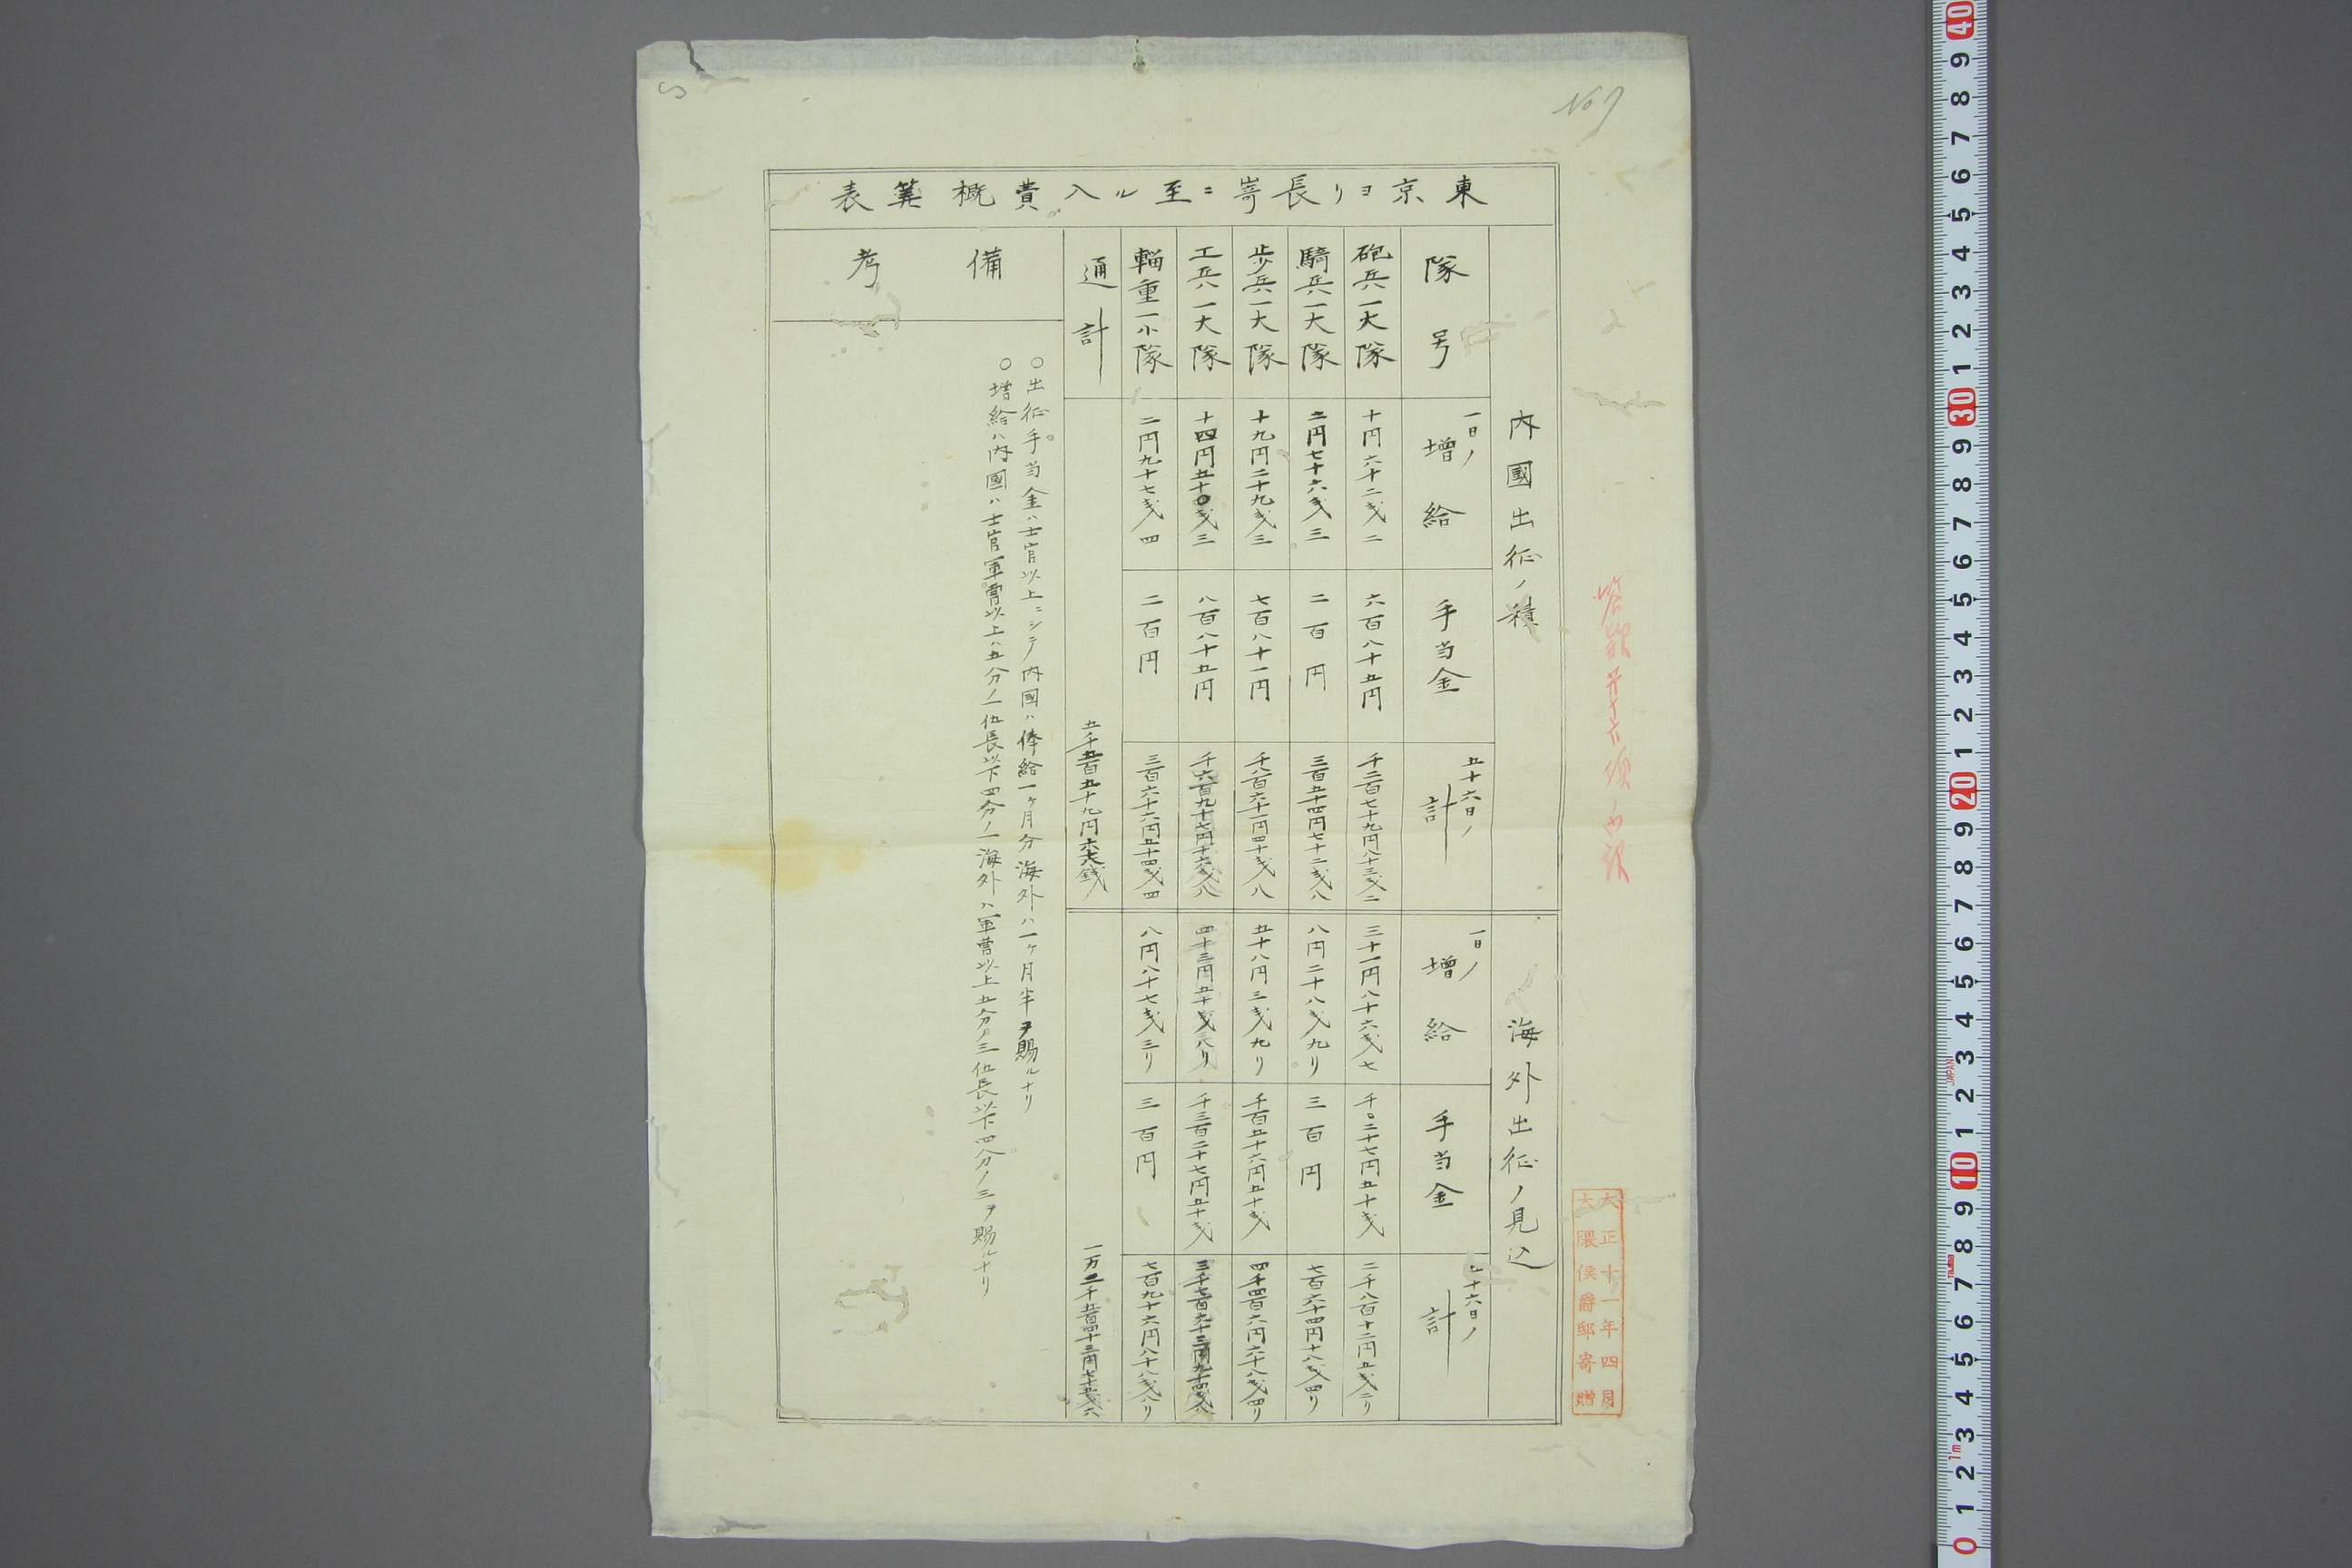 No 7
東京ヨリ長嵜ニ至ル入費概筭表
内國出征ノ積
海外出征ノ見込
隊号
一日ノ
増給
手当金
五十六日ノ
計
一日ノ
増給
手当金
五十六日ノ
計
砲兵一大隊
十円六十二戋二
六百八十五円
千二百七十九円八十三戋二
三十一円八十六戋七
千〇二十七円五十戋
二千八百十二円五戋二リ
騎兵一大隊
二円七十六戋三
二百円
三百五十四円七十二戋八
八円二十八戋九リ
三百円
七百六十四円十八戋四リ
歩兵一大隊
十九円二十九戋三
七百八十一円
千八百六十一円四十戋八
五十八円三戋九リ
千百五十六円五十戋
四千四百六円六十八戋四リ
工兵一大隊
十四円五十〇戋三
八百八十五円
千六百九十七円十六戋八
四十三円五十戋八リ
千三百二十七円五十戋
輜重一小隊
二円九十七戋四
二百円
三百六十六円五十四戋四
八円八十七戋三リ
三百円
七百九十六円八十八戋八リ
通計
五千五百五十九円六十八銭
一万二千五百四十三円七十五戋六
備考
○出征手当金ハ士官以上ニシテ内國ハ俸給一ケ月分海外ハ一ケ月半ヲ賜ルナリ
○増給ハ内國ハ士官軍曹以上ハ五分ノ一伍長以下四分ノ一海外ハ軍曹以上五分ノ三伍長以下四分ノ三ヲ賜ルナリ
大正十一年四月
大隈侯爵邸寄贈